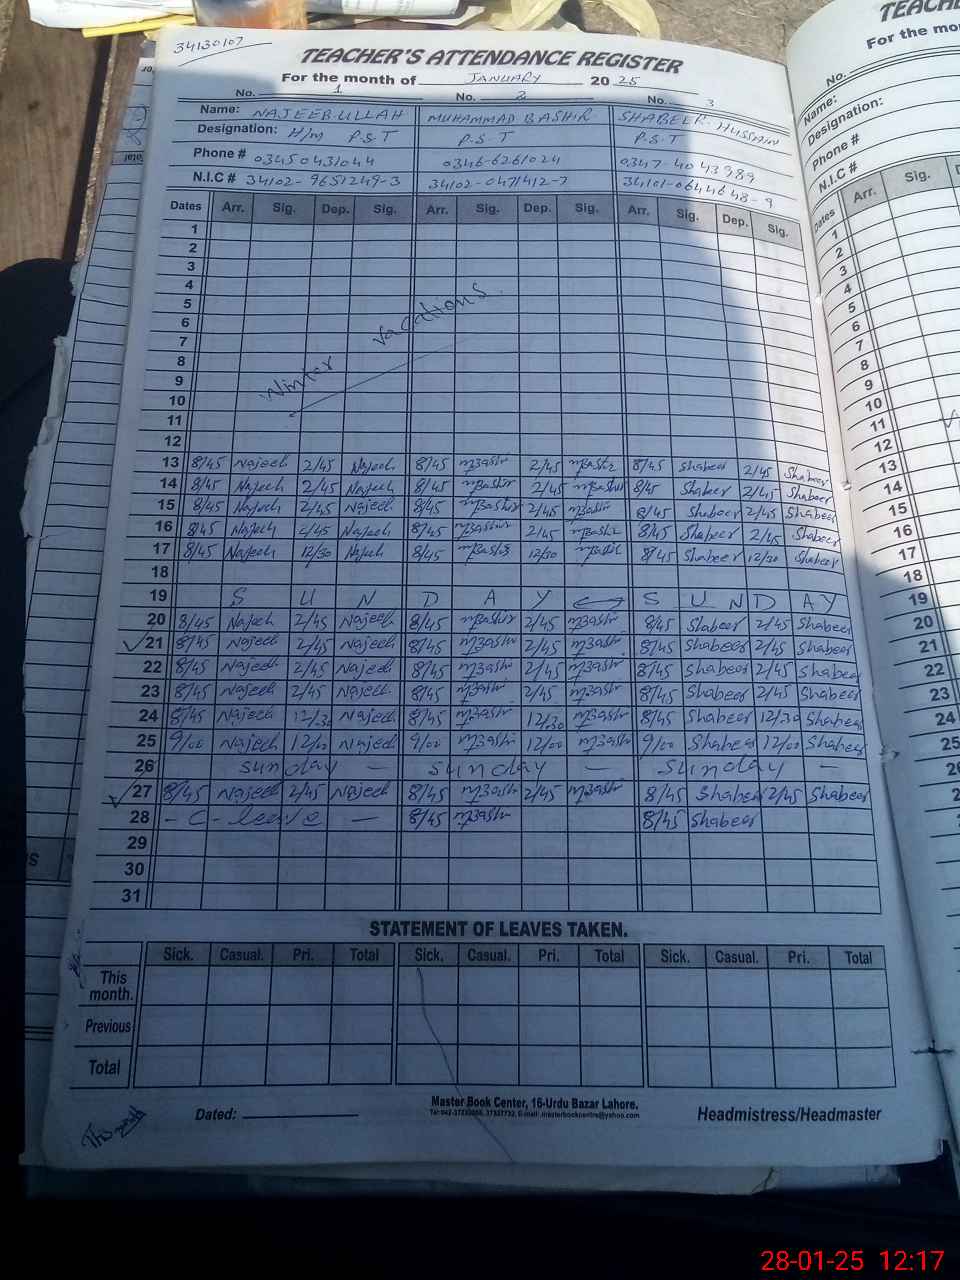 34130107
TEACHER'S ATTENDANCE REGISTER
For the month of JANUARY 2025
No. 1 No. 2 No. 3
Name: NAJEEB-ULLAH MUHAMMAD BASHIR SHABEER-HUSSAIN
Designation: H/M P.S.T P.S.T P.S.T
Phone # 03450431044 0346-6261024 0347-4043989
N.I.C # 34102-9651249-3 34102-0471412-7 34101-0644648-9
Dates Arr. Sig. Dep. Sig. Arr. Sig. Dep. Sig. Arr. Sig. Dep. Sig.
1
2
3
4
5
6
7
8
9
10
11
12
Winter vacations
13 8/45 Najeeb 2/45 Najeeb 8/45 MBashir 2/45 MBashir 8/45 Shabeer 2/45 Shabeer
14 8/45 Najeeb 2/45 Najeeb 8/45 MBashir 2/45 MBashir 8/45 Shabeer 2/45 Shabeer
15 8/45 Najeeb 2/45 Najeeb 8/45 MBashir 2/45 MBashir 8/45 Shabeer 2/45 Shabeer
16 8/45 Najeeb 2/45 Najeeb 8/45 MBashir 2/45 MBashir 8/45 Shabeer 2/45 Shabeer
17 8/45 Najeeb 12/30 Najeeb 8/45 MBashir 12/30 MBashir 8/45 Shabeer 12/30 Shabeer
18
19 S U N D A Y S U N D A Y
20 8/45 Najeeb 2/45 Najeeb 8/45 MBashir 2/45 MBashir 8/45 Shabeer 2/45 Shabeer
21 8/45 Najeeb 2/45 Najeeb 8/45 MBashir 2/45 MBashir 8/45 Shabeer 2/45 Shabeer
22 8/45 Najeeb 2/45 Najeeb 8/45 MBashir 2/45 MBashir 8/45 Shabeer 2/45 Shabeer
23 8/45 Najeeb 2/45 Najeeb 8/45 MBashir 2/45 MBashir 8/45 Shabeer 2/45 Shabeer
24 8/45 Najeeb 12/30 Najeeb 8/45 MBashir 12/30 MBashir 8/45 Shabeer 12/30 Shabeer
25 9/00 Najeeb 12/00 Najeeb 9/00 MBashir 12/00 MBashir 9/00 Shabeer 12/00 Shabeer
26 Sunday — Sunday — Sunday —
27 8/45 Najeeb 2/45 Najeeb 8/45 MBashir 2/45 MBashir 8/45 Shabeer 2/45 Shabeer
28 - C - leave — 8/45 MBashir 8/45 Shabeer
29
30
31
STATEMENT OF LEAVES TAKEN.
Sick. Casual. Pri. Total Sick. Casual. Pri. Total Sick. Casual. Pri. Total
This month.
Previous
Total
Dated:
Master Book Center, 16-Urdu Bazar Lahore.
Headmistress/Headmaster
TEACH
For the mo
No.
Name:
Designation:
Phone #
N.I.C #
Dates Arr. Sig.
1
2
3
4
5
6
7
8
9
10
11
12
13
14
15
16
17
18
19
20
21
22
23
24
25
26
27
28
29
30
31
28-01-25 12:17